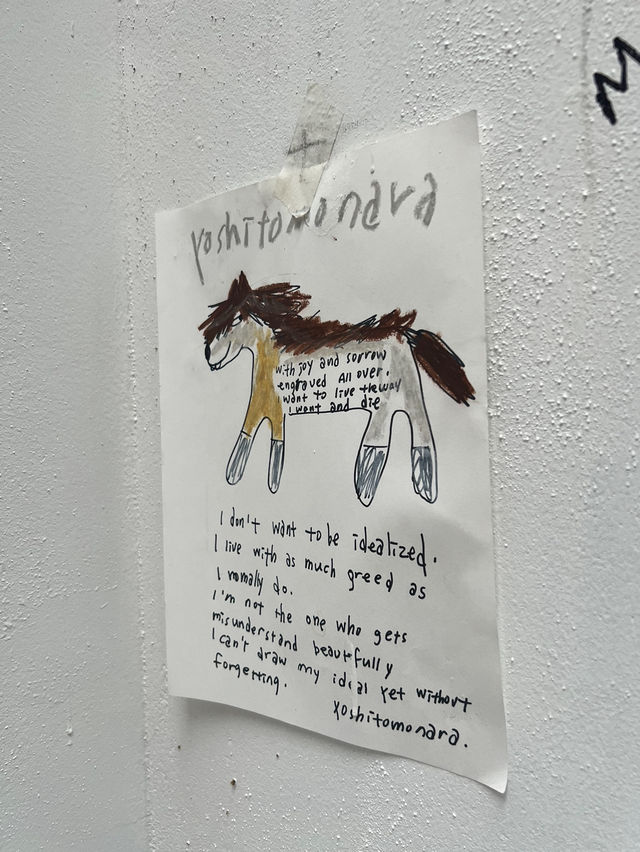 yoshitomonara
with joy and sorrow
engraved All over.
want to live theway
I want and die
I don't want to be idealized.
I live with as much greed as
I nomally do.
I'm not the one who gets
misunderstand beautfully
I can't draw my ideal yet without
forgetting.
yoshitomonara.